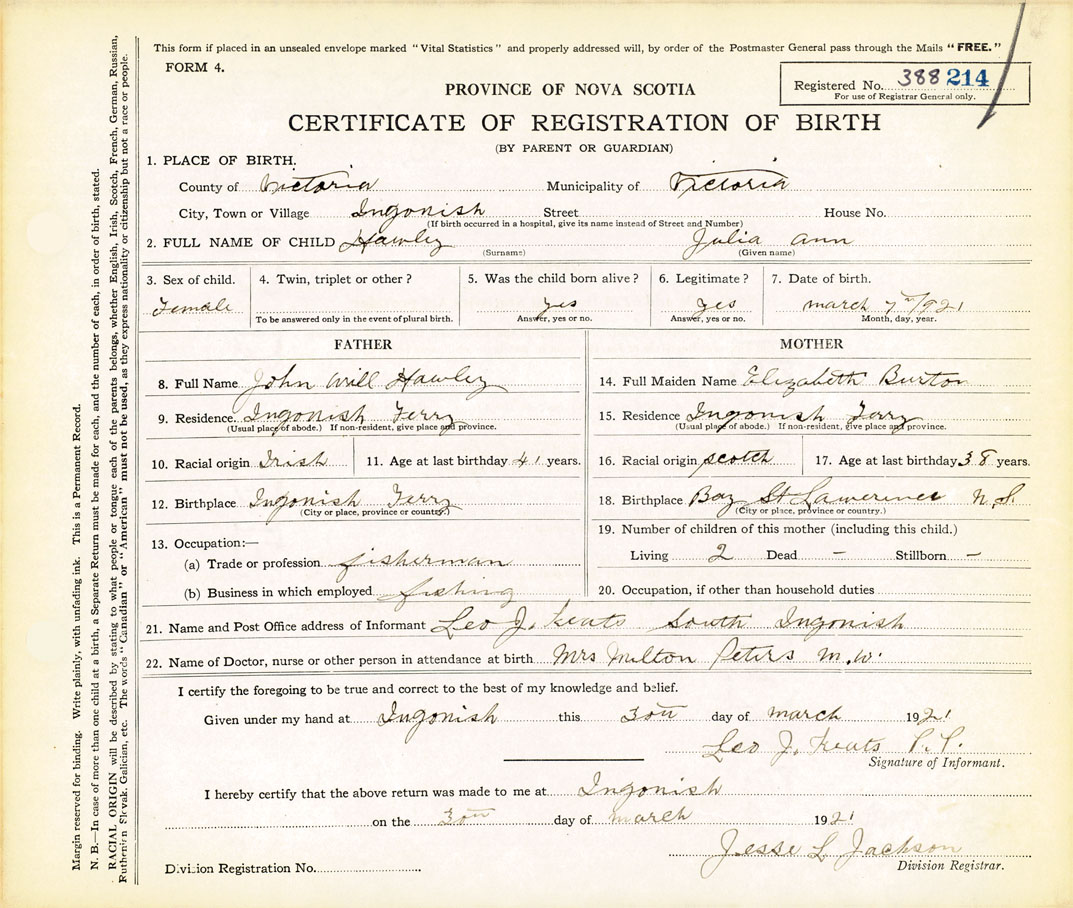 This form if placed in an unsealed envelope marked "Vital Statistics" and properly addressed will, by order of the Postmaster General pass through the Mails "FREE."
FORM 4.
Registered No. 388 214
For use of Registrar General only.
PROVINCE OF NOVA SCOTIA
CERTIFICATE OF REGISTRATION OF BIRTH
(BY PARENT OR GUARDIAN)
1. PLACE OF BIRTH.
County of Victoria Municipality of Victoria
City, Town or Village Ingonish Street House No.
(If birth occurred in a hospital, give its name instead of Street and Number)
2. FULL NAME OF CHILD Hawley Julia Ann
(Surname) (Given name)
3. Sex of child. 4. Twin, triplet or other? 5. Was the child born alive? 6. Legitimate? 7. Date of birth.
Female yes yes march 7th 1921
To be answered only in the event of plural birth. Answer, yes or no. Answer, yes or no. Month, day, year.
FATHER
8. Full Name John Will Hawley
9. Residence. Ingonish Ferry
(Usual place of abode.) If non-resident, give place and province.
10. Racial origin Irish 11. Age at last birthday 41 years.
12. Birthplace Ingonish Ferry
(City or place, province or country.)
13. Occupation:—
(a) Trade or profession fisherman
(b) Business in which employed fishing
MOTHER
14. Full Maiden Name Elizabeth Burton
15. Residence Ingonish Ferry
(Usual place of abode.) If non-resident, give place and province.
16. Racial origin scotch 17. Age at last birthday 38 years.
18. Birthplace Bay St Lawrence N.S.
(City or place, province or country.)
19. Number of children of this mother (including this child.)
Living 2 Dead – Stillborn –
20. Occupation, if other than household duties
21. Name and Post Office address of Informant Leo J. Keats South Ingonish
22. Name of Doctor, nurse or other person in attendance at birth Mrs Milton Peters M.W.
I certify the foregoing to be true and correct to the best of my knowledge and belief.
Given under my hand at Ingonish this 30th day of march 1921
Leo J. Keats P.P.
Signature of Informant.
I hereby certify that the above return was made to me at Ingonish
on the 30th day of march 1921
Jesse L. Jackson
Division Registration No. Division Registrar.
Margin reserved for binding. Write plainly, with unfading ink. This is a Permanent Record.
N. B.—In case of more than one child at a birth, a Separate Return must be made for each, and the number of each, in order of birth, stated.
RACIAL ORIGIN will be described by stating to what people or tongue each of the parents belongs, whether English, Irish, Scotch, French, German, Russian,
Ruthenian Slovak, Galician, etc. The words "Canadian" or "American" must not be used, as they express nationality or citizenship but not a race or people.